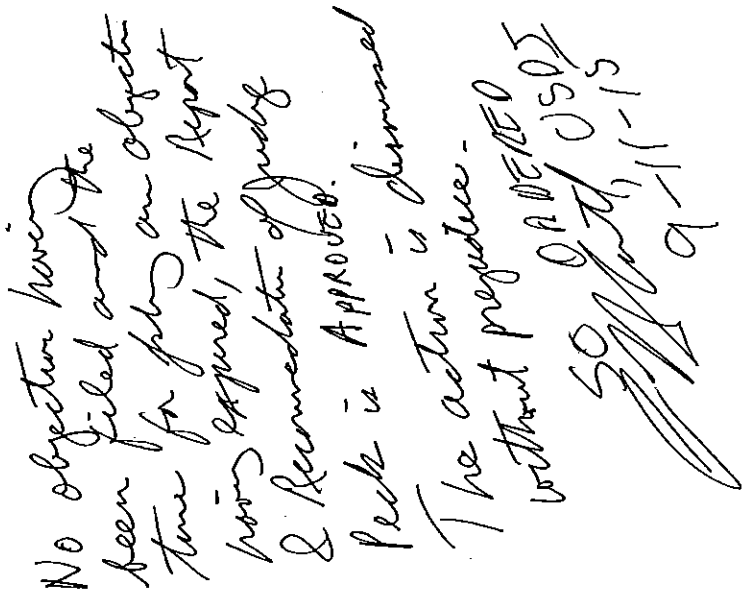 No objection having
been filed and the
time for filing an objectn
having expired, the Report
& Recommendatn of Judge
Peck is APPROVED.
The action is dismissed
without prejudice.
SO ORDERED
USDJ
9-11-15